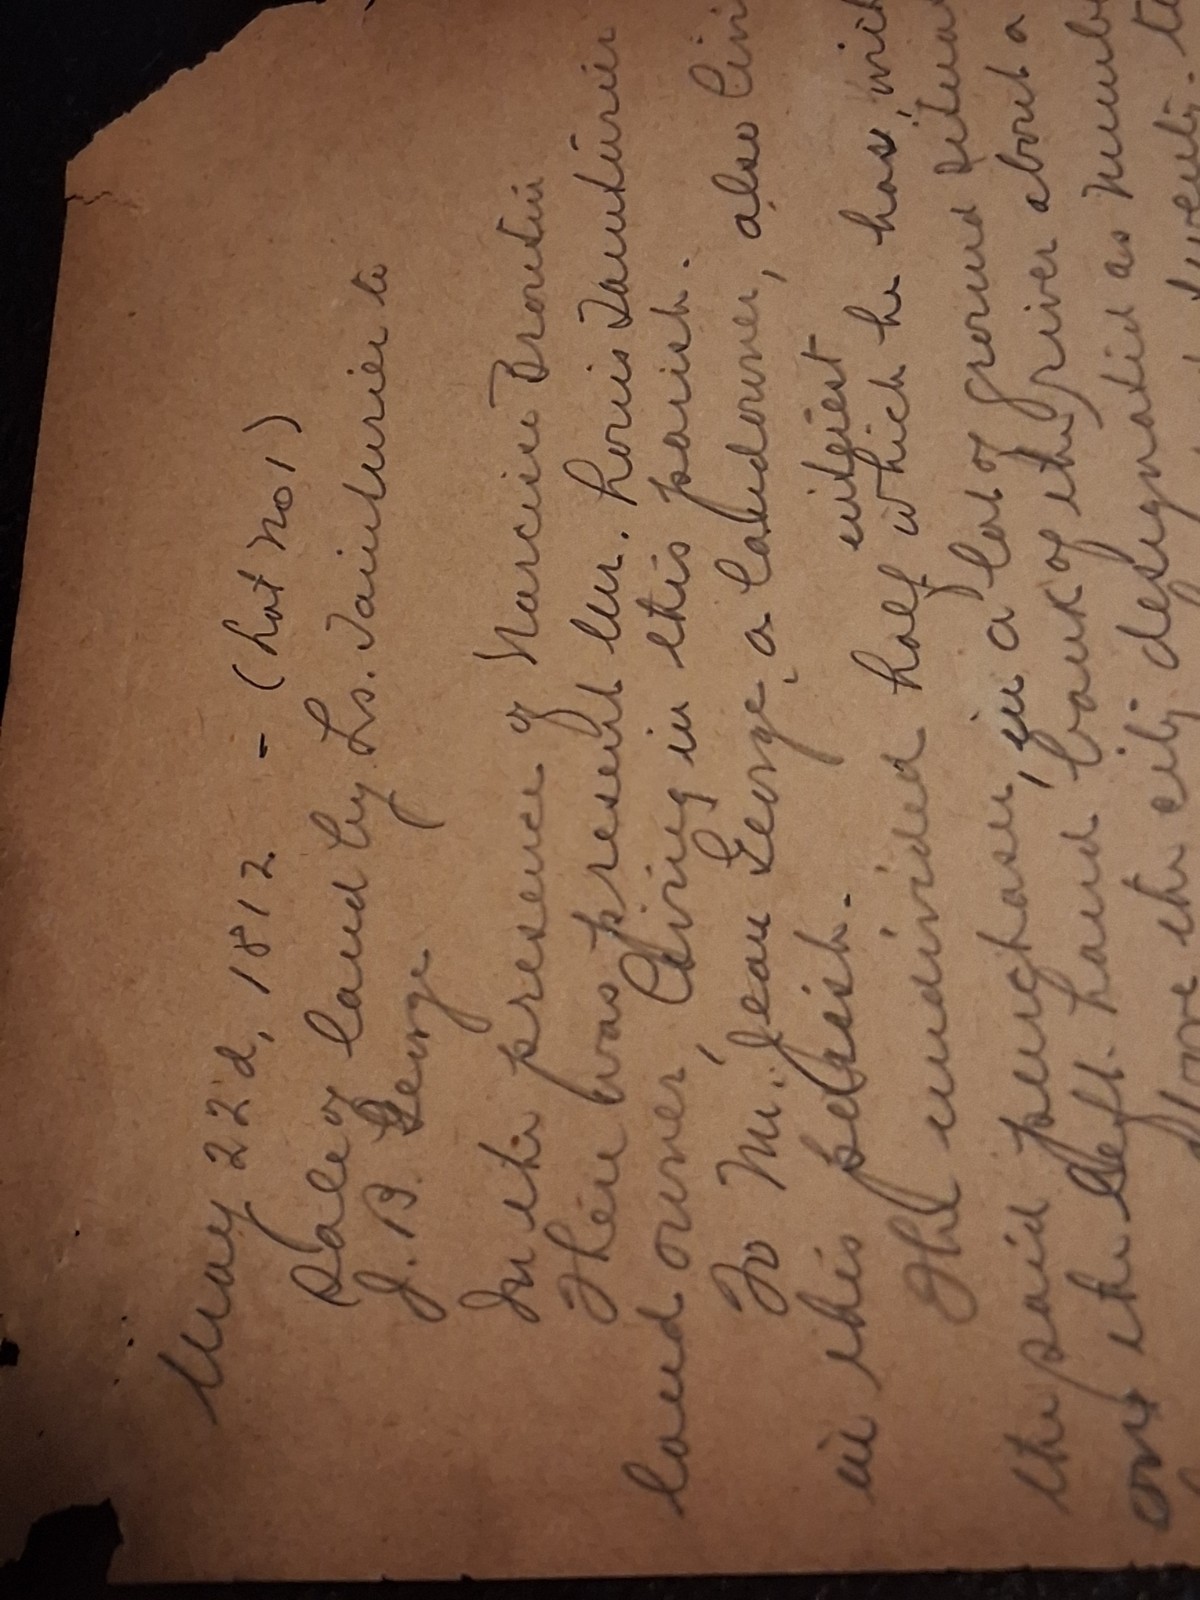 May 22d, 1812 - (Lot No 1)
Sale of land by Ls. Dauterier to
J. B. George
In the presence of Narcisse Broutin
There was present Mr. Louis Dauterier
land owner, living in this parish.
To Mr. Jean George, a landowner, also livin
in this parish.
interest
The undivided half which he has, with
the said purchaser, in a lot of ground situa
on the left hand bank of the river about a
the city designated as numbe
twenty-